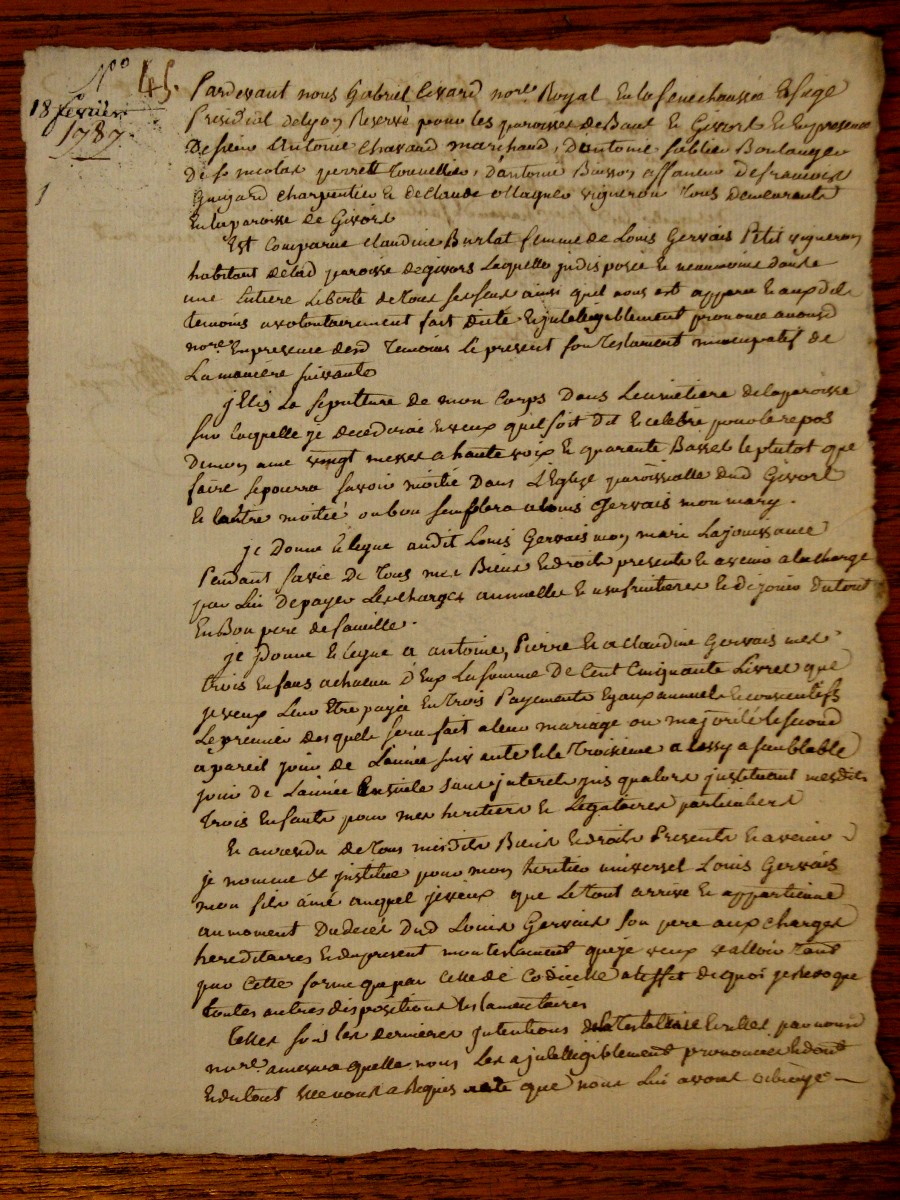 N.° 45.
18 fevrier
1787.
1
Pardevant nous Gabriel Civard nore. Royal En la senechaussée Et siege
Presidial de Lyon Reservé pour les paroisses de Et Givors Et En presence
De sieur Antoine Chavand marchand, D'antoine Boulanger
De sr. nicolas perrett Tonnellier, D'antoine Buisson affaneur de francois
Guigard charpentier Et de Claude vigneron Tous demeurants
En la paroisse de Givors
Est Comparue Claudine Burlat femme de Louis Gervais Petit vigneron
habitant de lad paroisse de givors Laquelle jndisposée Et neanmoins dans
une Entiere Liberte de Tous ses sens ainsi quil nous est apparu Et aux dits
temoins a volontairement fait dicté Et jntelligiblement prononcé a nousd
nore. En presence desd Temoins Le present son Testament nuncupatif de
La maniere suivante
jElis La sepulture de mon Corps Dans Le cimetiere de la paroisse
sur laquelle je decederaie Et veux quil soit Dit Et celebré pour le repos
De mon ame vingt messes a haute voix Et quarente Basses le plutot que
faire se pourra savoir moitié Dans L'Eglise paroissialle dud Givors
Et l'autre moitié ou bon semblera a Louis Gervais mon mary.
je Donne Et legue audit Louis Gervais mon mari La jouissance
Pendant sa vie De Tous mes Biens Et droits presents Et a venir a la charge
par Lui De payer Les charges annuelles Et usufruitieres Et de jouir du tout
En Bon pere de famille.
je Donne Et legue a antoine, Pierre Et a Claudine Gervais mes
trois Enfans a chacun d'Eux La somme De Cent Cinquante Livres que
je veux Leur Etre payée En Trois Payements Egaux annuels Et consecutifs
Le premier desquels sera fait a leur mariage ou majorité le second
a pareil jour de L'année suivante Et le Troisieme a semblable
jour De L'année Ensuite sans jnteret jusqualors jnstituant mesdits
Trois Enfants pour mes heritiers Et Legataires particuliers
Et au residu de Tous mesdits Biens Et droits Presents Et a venir
je nomme Et jnstitue pour mon heritier universel Louis Gervais
mon fils ainé auquel je veux que Le tout arrive Et appartienne
au moment Du decès Dud Louis Gervais son pere aux charges
hereditaires Et du present mon testament que je veux valloir Tant
par Cette forme que par Celle de Codicille a l'effet de quoi je revoque
toutes autres dispositions testamentaires
Telles sont les dernieres jntentions de la Testatrice par nousd
nore. amesure quelle nous Les a jntelligiblement prononcées Et dont
Et du tout Elle nous a Requis acte que nous Lui avons